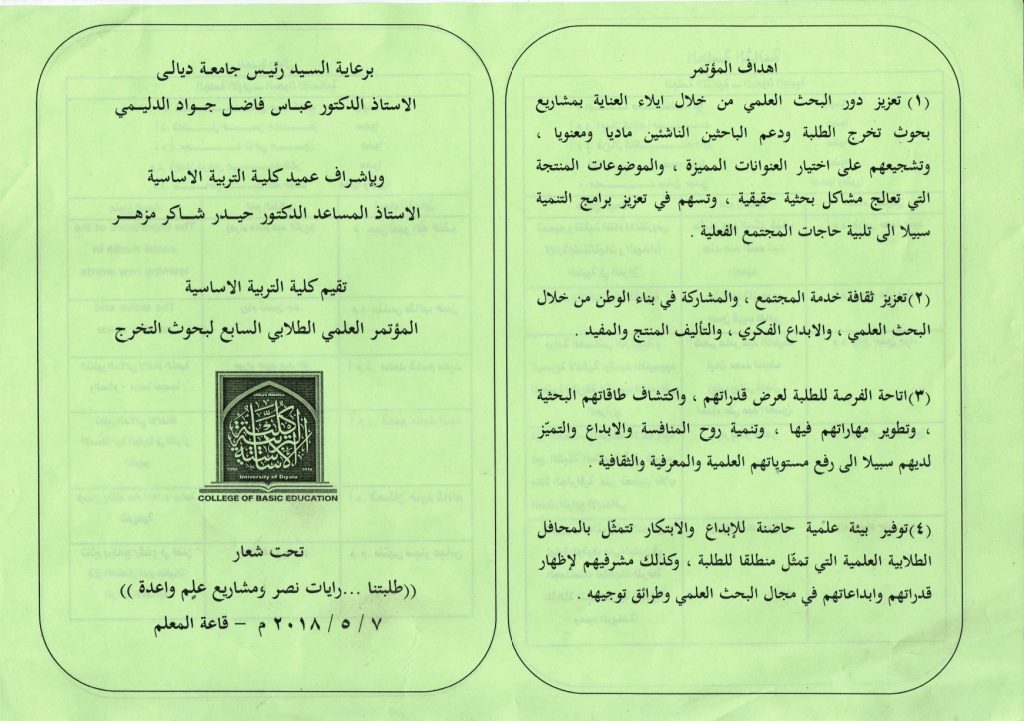 اهداف المؤتمر
(١) تعزيز دور البحث العلمي من خلال ايلاء العناية بمشاريع
بحوث تخرج الطلبة ودعم الباحثين الناشئين ماديا ومعنويا ،
وتشجيعهم على اختيار العنوانات المميزة ، والموضوعات المنتجة
التي تعالج مشاكل بحثية حقيقية ، وتسهم في تعزيز برامج التنمية
سبيلا الى تلبية حاجات المجتمع الفعلية .
(٢)تعزيز ثقافة خدمة المجتمع ، والمشاركة في بناء الوطن من خلال
البحث العلمي ، والابداع الفكري ، والتأليف المنتج والمفيد .
(٣)اتاحة الفرصة للطلبة لعرض قدراتهم ، واكتشاف طاقاتهم البحثية
، وتطوير مهاراتهم فيها ، وتنمية روح المنافسة والابداع والتميّز
لديهم سبيلا الى رفع مستوياتهم العلمية والمعرفية والثقافية .
(٤)توفير بيئة علمية حاضنة للإبداع والابتكار تتمثّل بالمحافل
الطلابية العلمية التي تمثّل منطلقا للطلبة ، وكذلك مشرفيهم لإظهار
قدراتهم وابداعاتهم في مجال البحث العلمي وطرائق توجيهه .
برعاية السيد رئيس جامعة ديالى
الاستاذ الدكتور عباس فاضل جواد الدليمي
وبإشراف عميد كلية التربية الاساسية
الاستاذ المساعد الدكتور حيدر شاكر مزهر
تقيم كلية التربية الاساسية
المؤتمر العلمي الطلابي السابع لبحوث التخرج
كلية التربية الاساسية
University of Diyala
COLLEGE OF BASIC EDUCATION
تحت شعار
((طلبتنا ...رايات نصر ومشاريع علم واعدة ))
٧ / ٥ / ٢٠١٨ م – قاعة المعلم